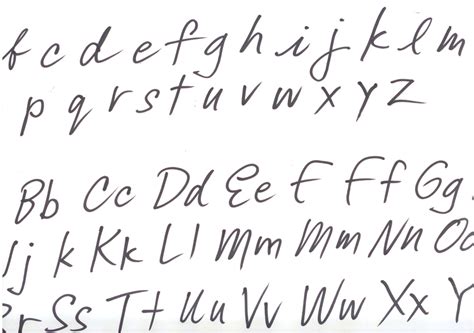 b c d e f g h i j k l m
p q r s t u v w x y z
Bb Cc Dd Ee F Ff Gg
j k Kk Ll Mm Mm Nn O
r Ss Tt Uu Vv Ww Xx Y